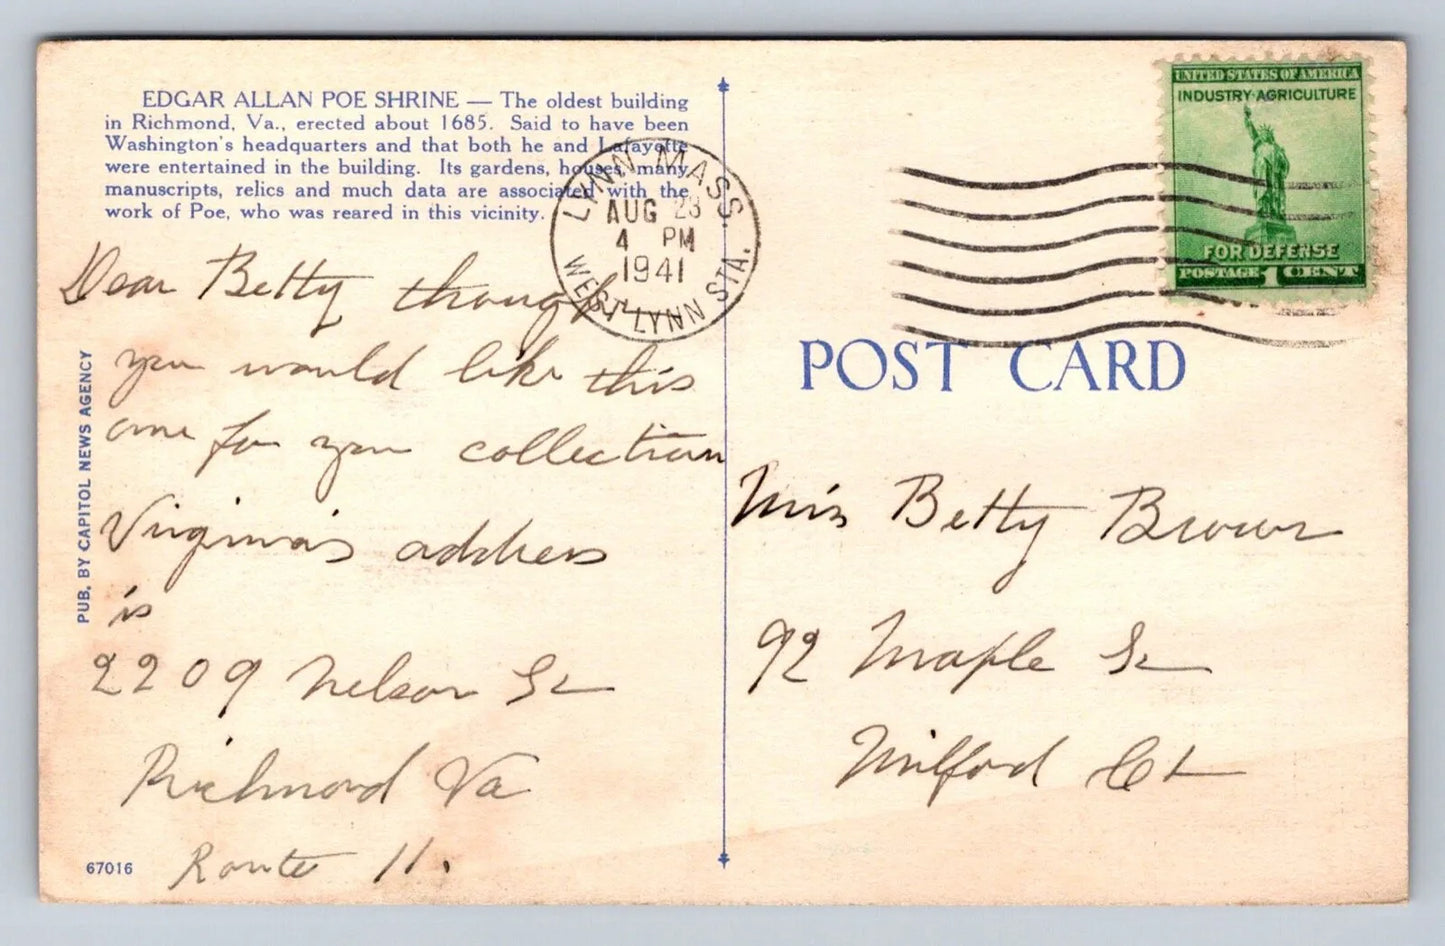 EDGAR ALLAN POE SHRINE — The oldest building
in Richmond, Va., erected about 1685. Said to have been
Washington's headquarters and that both he and Lafayette
were entertained in the building. Its gardens, houses, many
manuscripts, relics and much data are associated with the
work of Poe, who was reared in this vicinity.
Dear Betty though
you would like this
one for your collection
Virginia's address
is
2209 Nelson St
Richmond Va
Route 11.
PUB. BY CAPITOL NEWS AGENCY
67016
LYNN MASS.
AUG 23
4 PM
1941
WEST LYNN STA.
UNITED STATES OF AMERICA
INDUSTRY·AGRICULTURE
FOR DEFENSE
POSTAGE 1 CENT
POST CARD
Miss Betty Brown
92 Maple St
Milford Ct